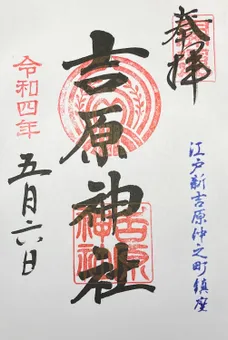 奉拝
江戸新吉原仲之町鎮座
吉原神社
令和四年
五月六日